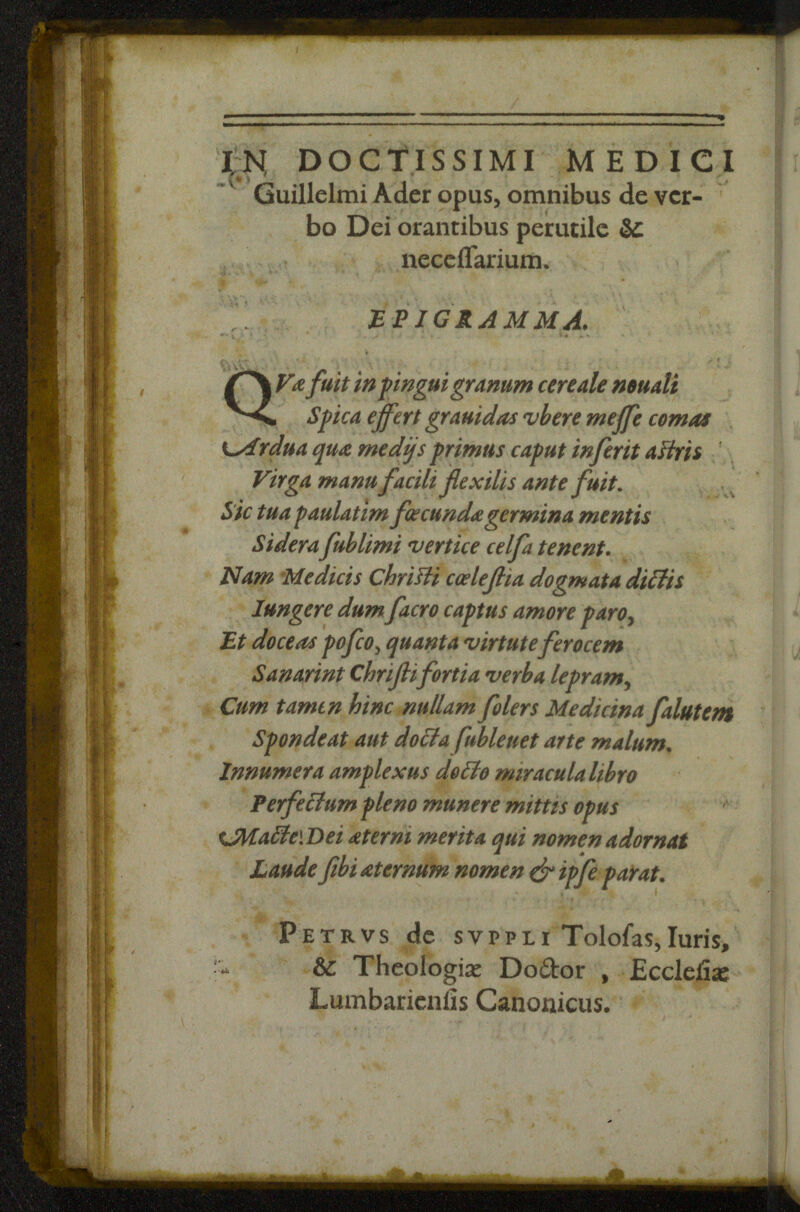 IN DOCTISSIMI MEDICI
Guillelmi Ader opus, omnibus de ver-
bo Dei orantibus perutile &
neceſſarium.
EPIGRAMMA.
QVæ fuit in pingui granum cereale nouali
Spica effert grauidas vbere meſſe comas
Ardua quæ medijs primus caput inſerit aſtris
Virga manu facili flexilis ante fuit.
Sic tua paulatim fœcundæ germina mentis
Sidera ſublimi vertice celſa tenent.
Nam Medicis Chriſti cœleſtia dogmata dictis
Iungere dum ſacro captus amore paro,
Et doceas poſco, quanta virtute ferocem
Sanarint Chriſti fortia verba lepram,
Cum tamen hinc nullam ſolers Medicina ſalutem
Spondeat aut docta ſubleuet arte malum.
Innumera amplexus docto miracula libro
Perfectum pleno munere mittis opus
Macte! Dei æterni merita qui nomen adornat
Laude ſibi æternum nomen & ipſe parat.
PETRVS de SVPPLI Toloſas, Iuris,
& Theologiæ Doctor , Eccleſiæ
Lumbarienſis Canonicus.